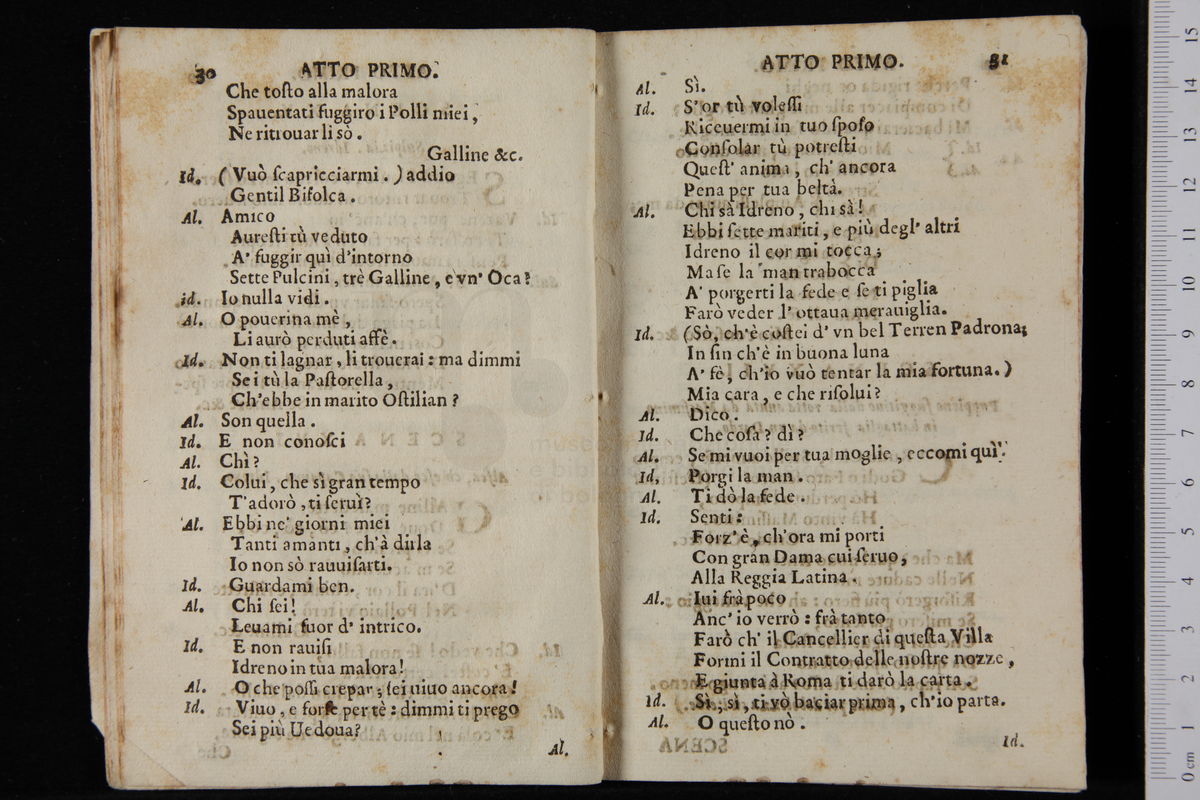 30 ATTO PRIMO.
Che toſto alla malora
Spauentati fuggiro i Polli miei,
Ne ritrouar li sò.
Galline &c.
Id. (Vuò ſcapricciarmi.) addio
Gentil Bifolca.
Al. Amico
Aureſti tù veduto
A' fuggir quì d'intorno
Sette Pulcini, trè Galline, e vn' Oca?
id. Io nulla vidi.
Al. O pouerina mè,
Li aurò perduti affè.
Id. Non ti lagnar, li trouerai: ma dimmi
Sei tù la Paſtorella,
Ch'ebbe in marito Oſtilian?
Al. Son quella.
Id. E non conoſci
Al. Chì?
Id. Colui, che sì gran tempo
T'adorò, ti ſeruì?
Al. Ebbi ne' giorni miei
Tanti amanti, ch'à dirla
Io non sò rauuiſarti.
Id. Guardami ben.
Al. Chi ſei!
Leuami fuor d' intrico.
Id. E non rauiſi
Idreno in tua malora!
Al. O che poſſi crepar; ſei uiuo ancora!
Id. Viuo, e forſe per tè: dimmi ti prego
Sei più Uedoua?
Al.
ATTO PRIMO. 31
Al. Sì.
Id. S'or tù voleſſi
Riceuermi in tuo ſpoſo
Conſolar tù potreſti
Queſt' anima, ch' ancora
Pena per tua beltà.
Al. Chi sà Idreno, chi sà!
Ebbi ſette mariti, e più degl' altri
Idreno il cor mi tocca;
Ma ſe la man trabocca
A' porgerti la fede e ſe ti piglia
Farò veder l' ottaua merauiglia.
Id. (Sò, ch'è coſtei d' vn bel Terren Padrona;
In fin ch'è in buona luna
A' fè, ch'io vuò tentar la mia fortuna.)
Mia cara, e che riſolui?
Al. Dico.
Id. Che coſa? dì?
Al. Se mi vuoi per tua moglie, eccomi quì!
Id, Porgi la man.
Al. Ti dò la fede.
Id. Senti:
Forz' è, ch'ora mi porti
Con gran Dama cui ſeruo,
Alla Reggia Latina.
Al. Iui frà poco
Anc' io verrò: frà tanto
Farò ch' il Cancellier di queſta Villa
Formi il Contratto delle noſtre nozze,
E giunta à Roma ti darò la carta.
Id. Sì, sì, ti vò baciar prima, ch'io parta.
Al. O queſto nò.
Id.